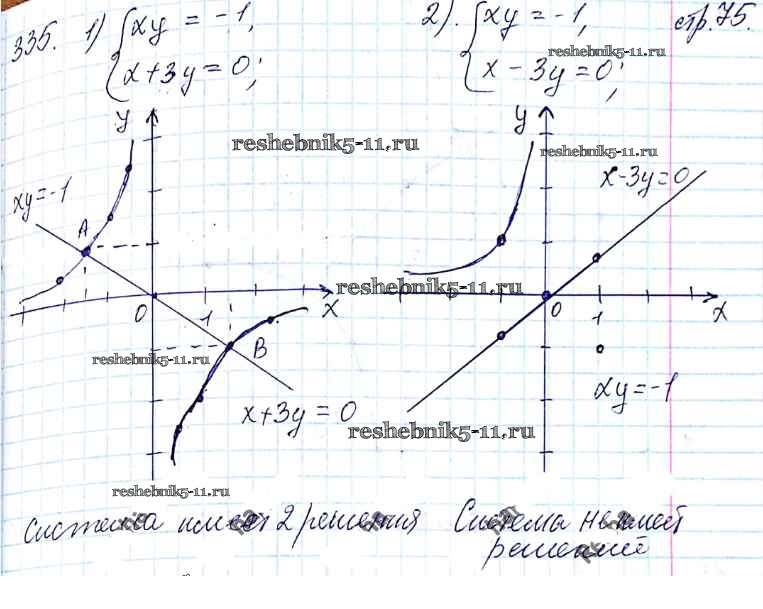 335. 1) { xy = -1,
x + 3y = 0;
2). { xy = -1,
x - 3y = 0;
стр. 75.
reshebnik5-11.ru
y
reshebnik5-11.ru
y
reshebnik5-11.ru
xy = -1
A
x - 3y = 0
reshebnik5-11.ru
0 1 x
0 1 x
reshebnik5-11.ru
B
xy = -1
x + 3y = 0
reshebnik5-11.ru
reshebnik5-11.ru
Система имеет 2 решения
Система не имеет
решений